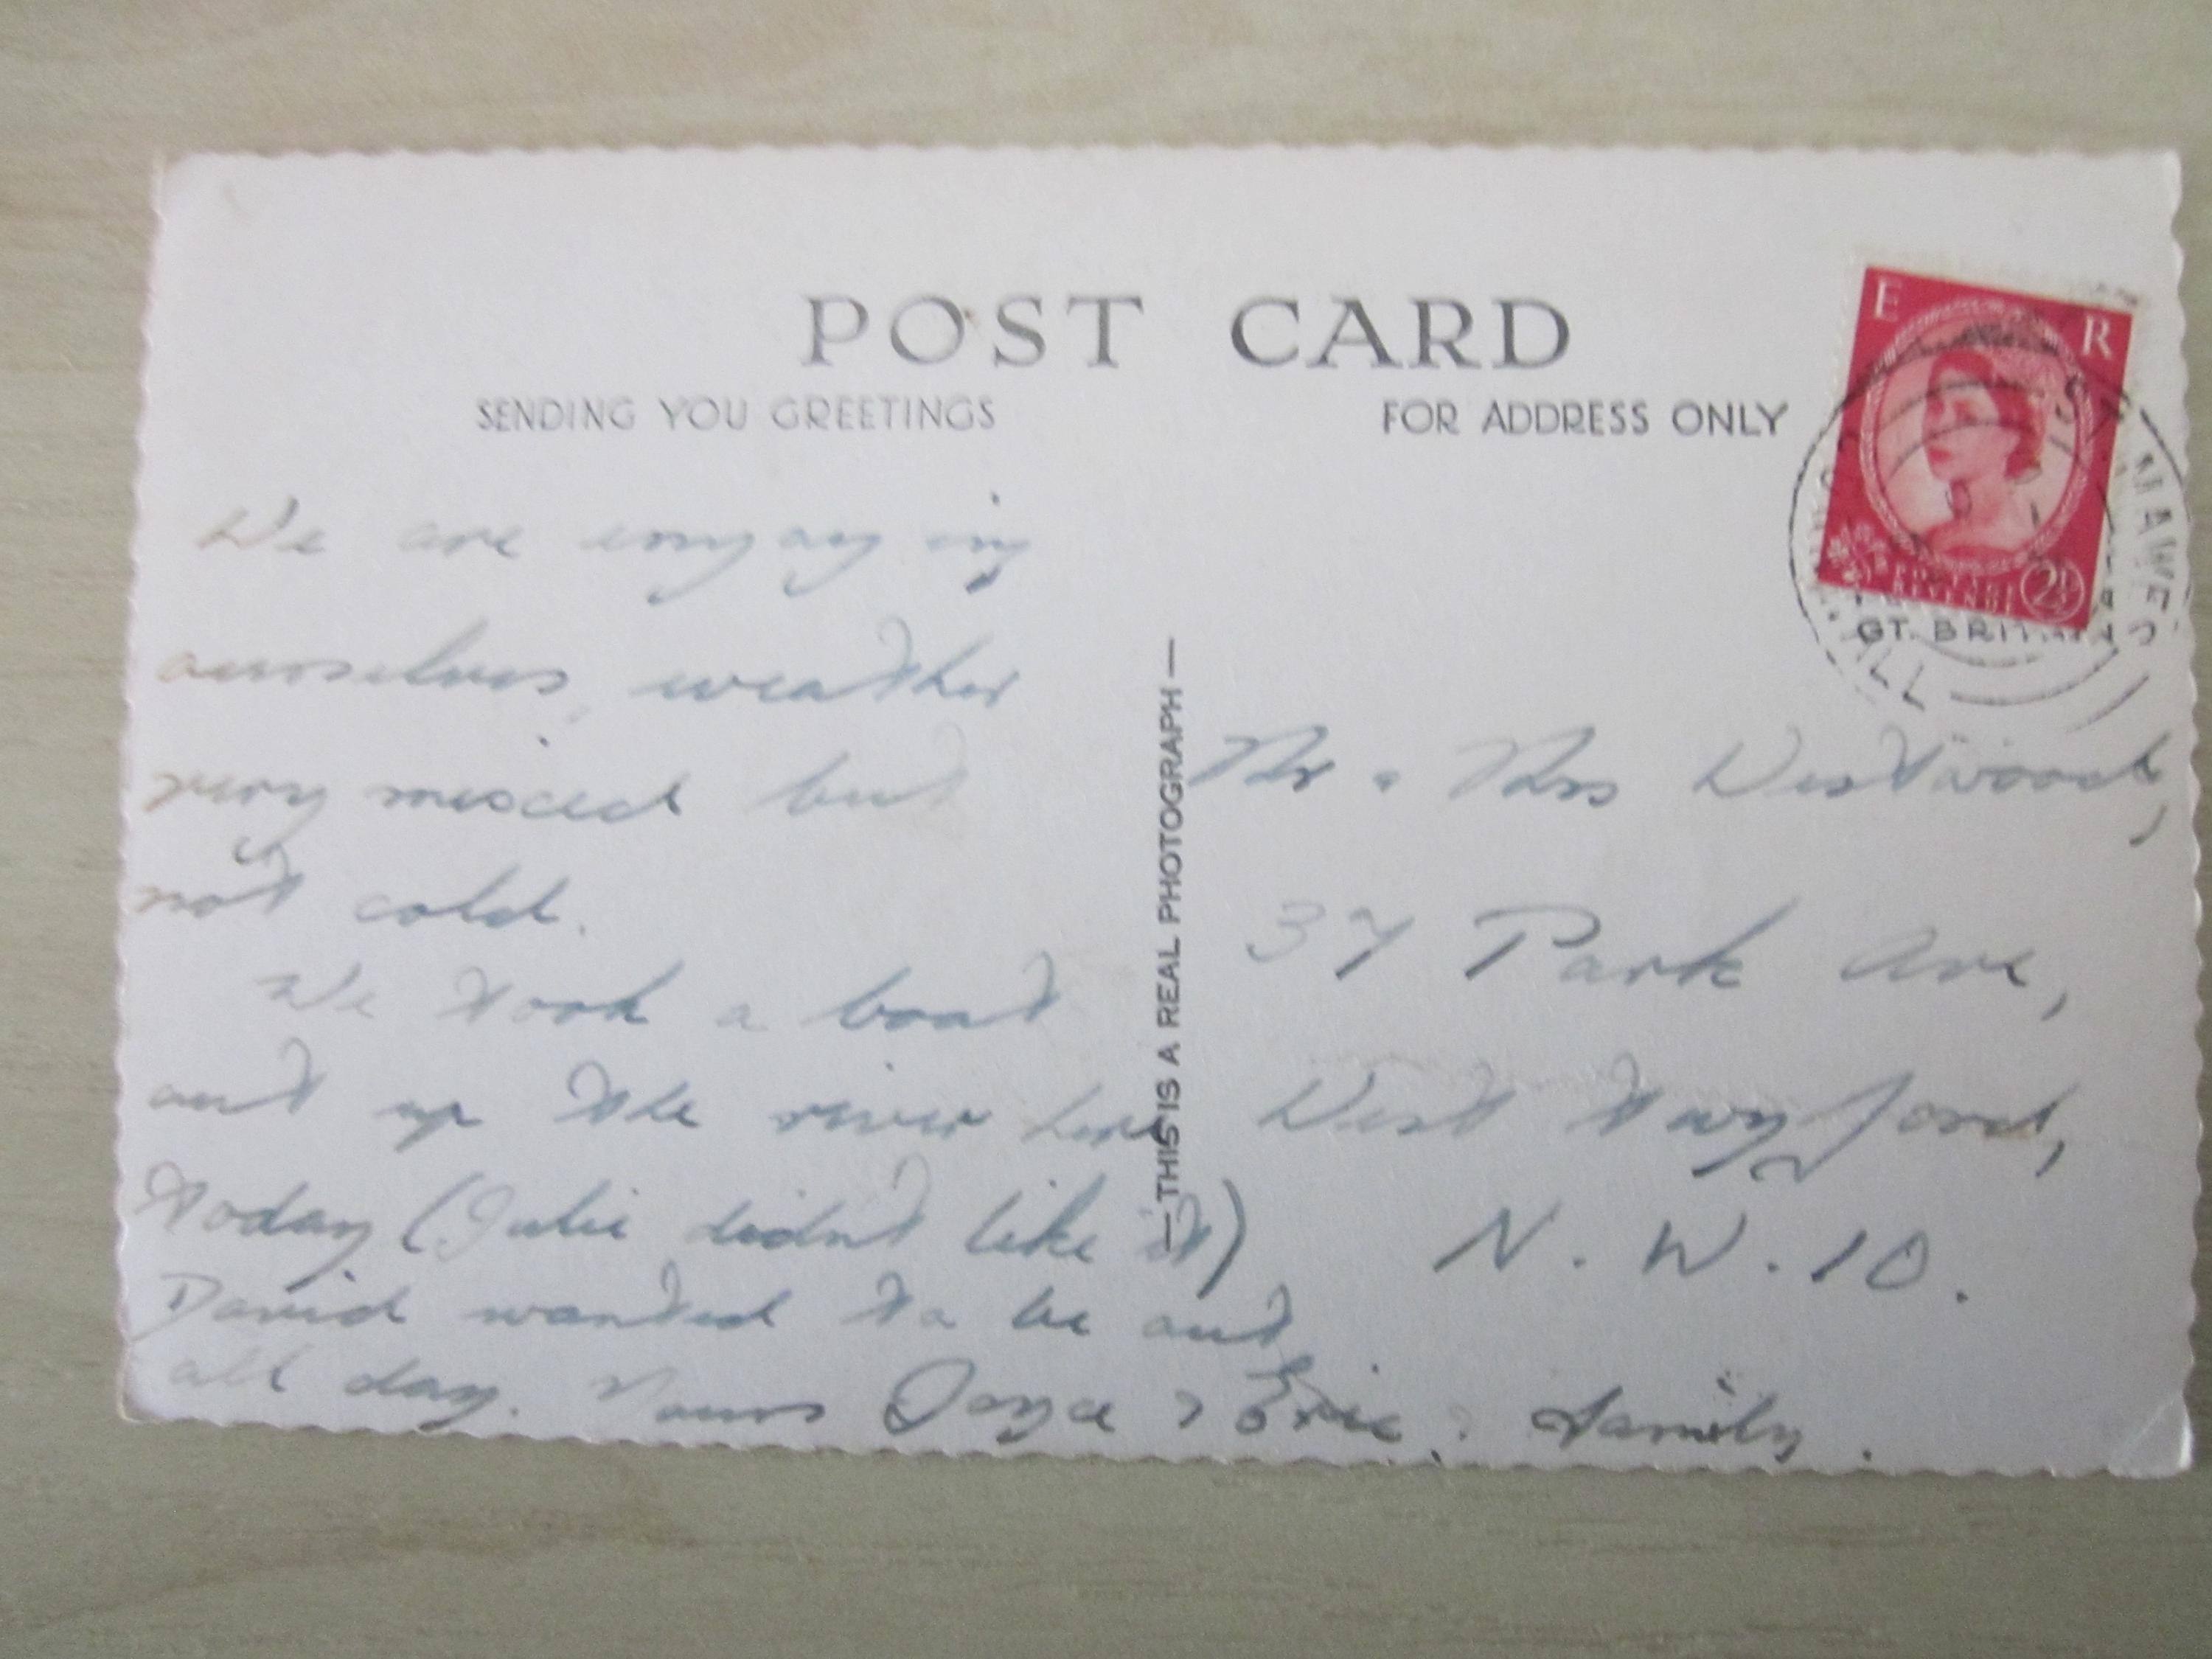 POST CARD
SENDING YOU GREETINGS
FOR ADDRESS ONLY
We are enjoying
ourselves, weather
very mixed but
not cold.
We took a boat
out up the river here
today (Julie didnt like it)
David wanted to be out
all day. Yours Joyce & Eric & family.
— THIS IS A REAL PHOTOGRAPH —
Mr & Mrs Westwood,
37 Park Ave,
West Twyford,
N.W.10.
E R
POSTAGE
REVENUE
2½
MAWES
GT. BRITAIN